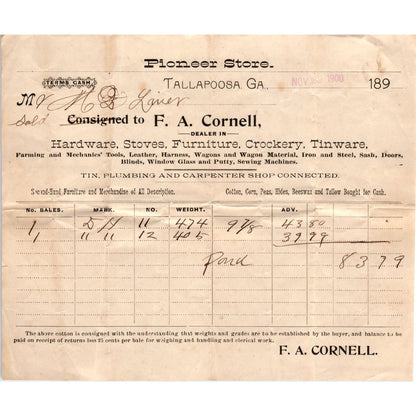 Pioneer Store.
TERMS CASH.
TALLAPOOSA GA. NOV 1900 189
Mr
Sold Consigned to F. A. Cornell,
DEALER IN
Hardware, Stoves, Furniture, Crockery, Tinware,
Farming and Mechanics' Tools, Leather, Harness, Wagons and Wagon Material, Iron and Steel, Sash, Doors,
Blinds, Window Glass and Putty, Sewing Machines.
TIN, PLUMBING AND CARPENTER SHOP CONNECTED.
Second-Hand Furniture and Merchandise of All Description. Cotton, Corn, Peas, Hides, Beeswax and Tallow Bought for Cash.
NO. BALES. MARK. NO. WEIGHT. ADV.
1 11 474 9 7/8 43 80
1 " " 12 405 39 99
Paid 83 79
The above cotton is consigned with the understanding that weights and grades are to be established by the buyer, and balance to be
paid on receipt of returns less 25 cents per bale for weighing and handling and clerical work.
F. A. CORNELL.